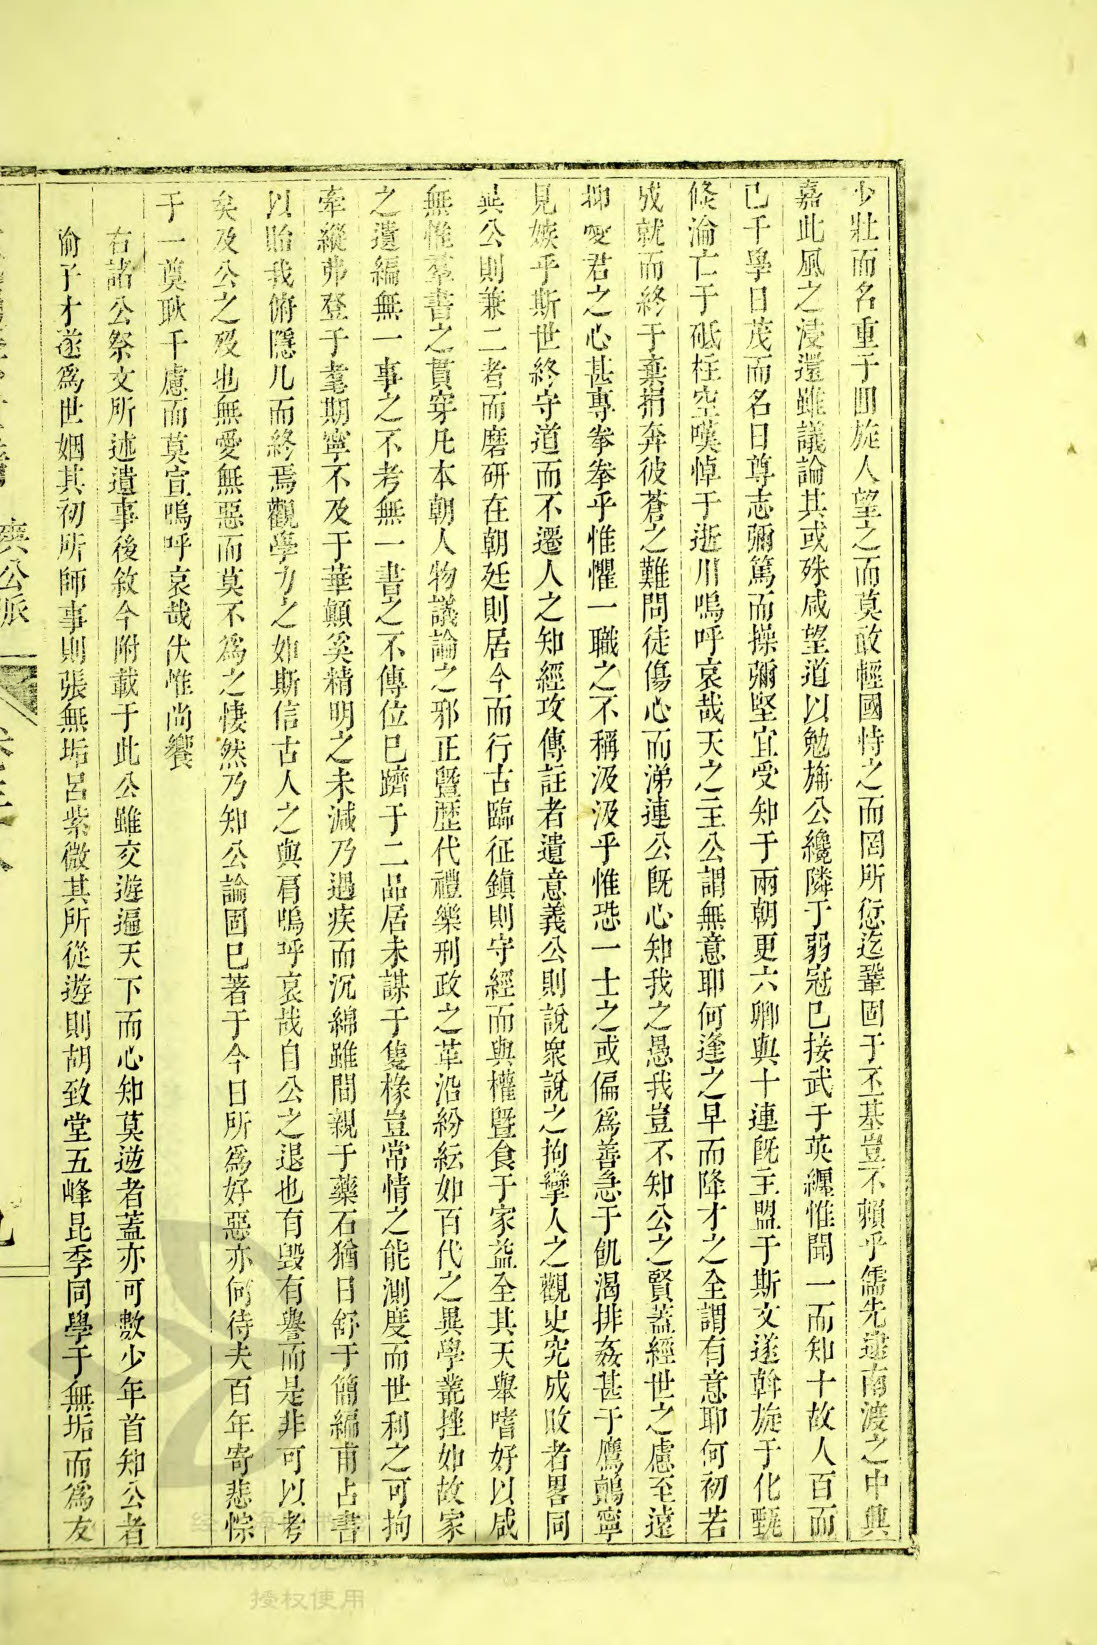 少壯而名重于囬旋人望之而莫敢輕國恃之而罔所愆迄鞏固于丕基豈不賴乎儒先逮南渡之中興
嘉此風之浸還雖議論其或殊咸望道以勉旃公纔隣于弱冠巳接武于英纏惟聞一而知十故人百而
已千學日茂而名日尊志彌篤而操彌堅宜受知于兩朝更六卿與十連旣主盟于斯文遂斡旋于化甄
倐淪亡于砥柱空嘆悼于逝川嗚呼哀哉天之生公謂無意耶何逢之早而降才之全謂有意耶何初若
成就而終于棄捐奔彼蒼之難問徒傷心而涕連公旣心知我之愚我豈不知公之賢蓋經世之慮至遠
抑愛君之心甚專拳拳乎惟懼一職之不稱汲汲乎惟恐一士之或偏爲善急于飢渴排姦甚于鷹鸇寧
見嫉乎斯世終守道而不遷人之知經攻傳註者遺意義公則說衆說之拘攣人之觀史究成敗者畧同
異公則兼二者而磨研在朝廷則居今而行古臨征鎮則守經而與權曁食于家益全其天舉嗜好以咸
無惟羣書之貫穿凡本朝人物議論之邪正曁歷代禮樂刑政之革沿紛紜如百代之異學叢挫如故家
之遺編無一事之不考無一書之不傳位巳躋于二品居未謀于隻椽豈常情之能測度而世利之可拘
牽縱弗登于耄期寧不及于華顛奚精明之未減乃遇疾而沉綿雖間親于藥石猶日舒于簡編甫占書
以貽我俯隱几而終焉觀學力之如斯信古人之與肩嗚呼哀哉自公之退也有毀有譽而是非可以考
矣及公之歿也無愛無惡而莫不爲之悽然乃知公論固巳著于今日所爲好惡亦何待夫百年寄悲悰
于一奠耿千慮而莫宣嗚呼哀哉伏惟尚饗
右諸公祭文所述遺事後敘今附載于此公雖交遊遍天下而心知莫逆者蓋亦可數少年首知公者
喻子才遂爲世姻其初所師事則張無垢呂紫微其所從遊則胡致堂五峰昆季同學于無垢而爲友
公派
授权使用